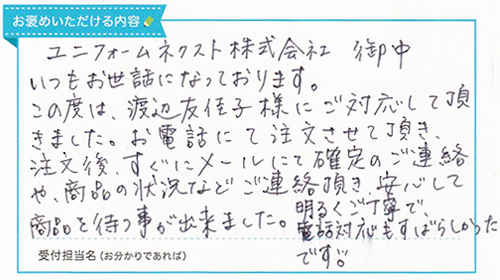 お褒めいただける内容
ユニフォームネクスト株式会社 御中
いつもお世話になっております。
この度は、渡辺友佳子様にご対応して頂
きました。お電話にて注文させて頂き、
注文後、すぐにメールにて確定のご連絡
や、商品の状況などご連絡頂き、安心して
商品を待つ事が出来ました。
明るくご丁寧で、
電話対応もすばらしかった
です。
受付担当名(お分かりであれば)